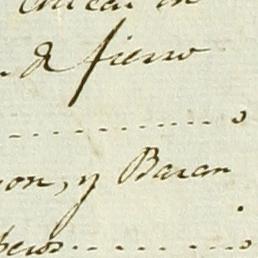 de fierro
.................. 0
on, y Baran
peros.......... 0